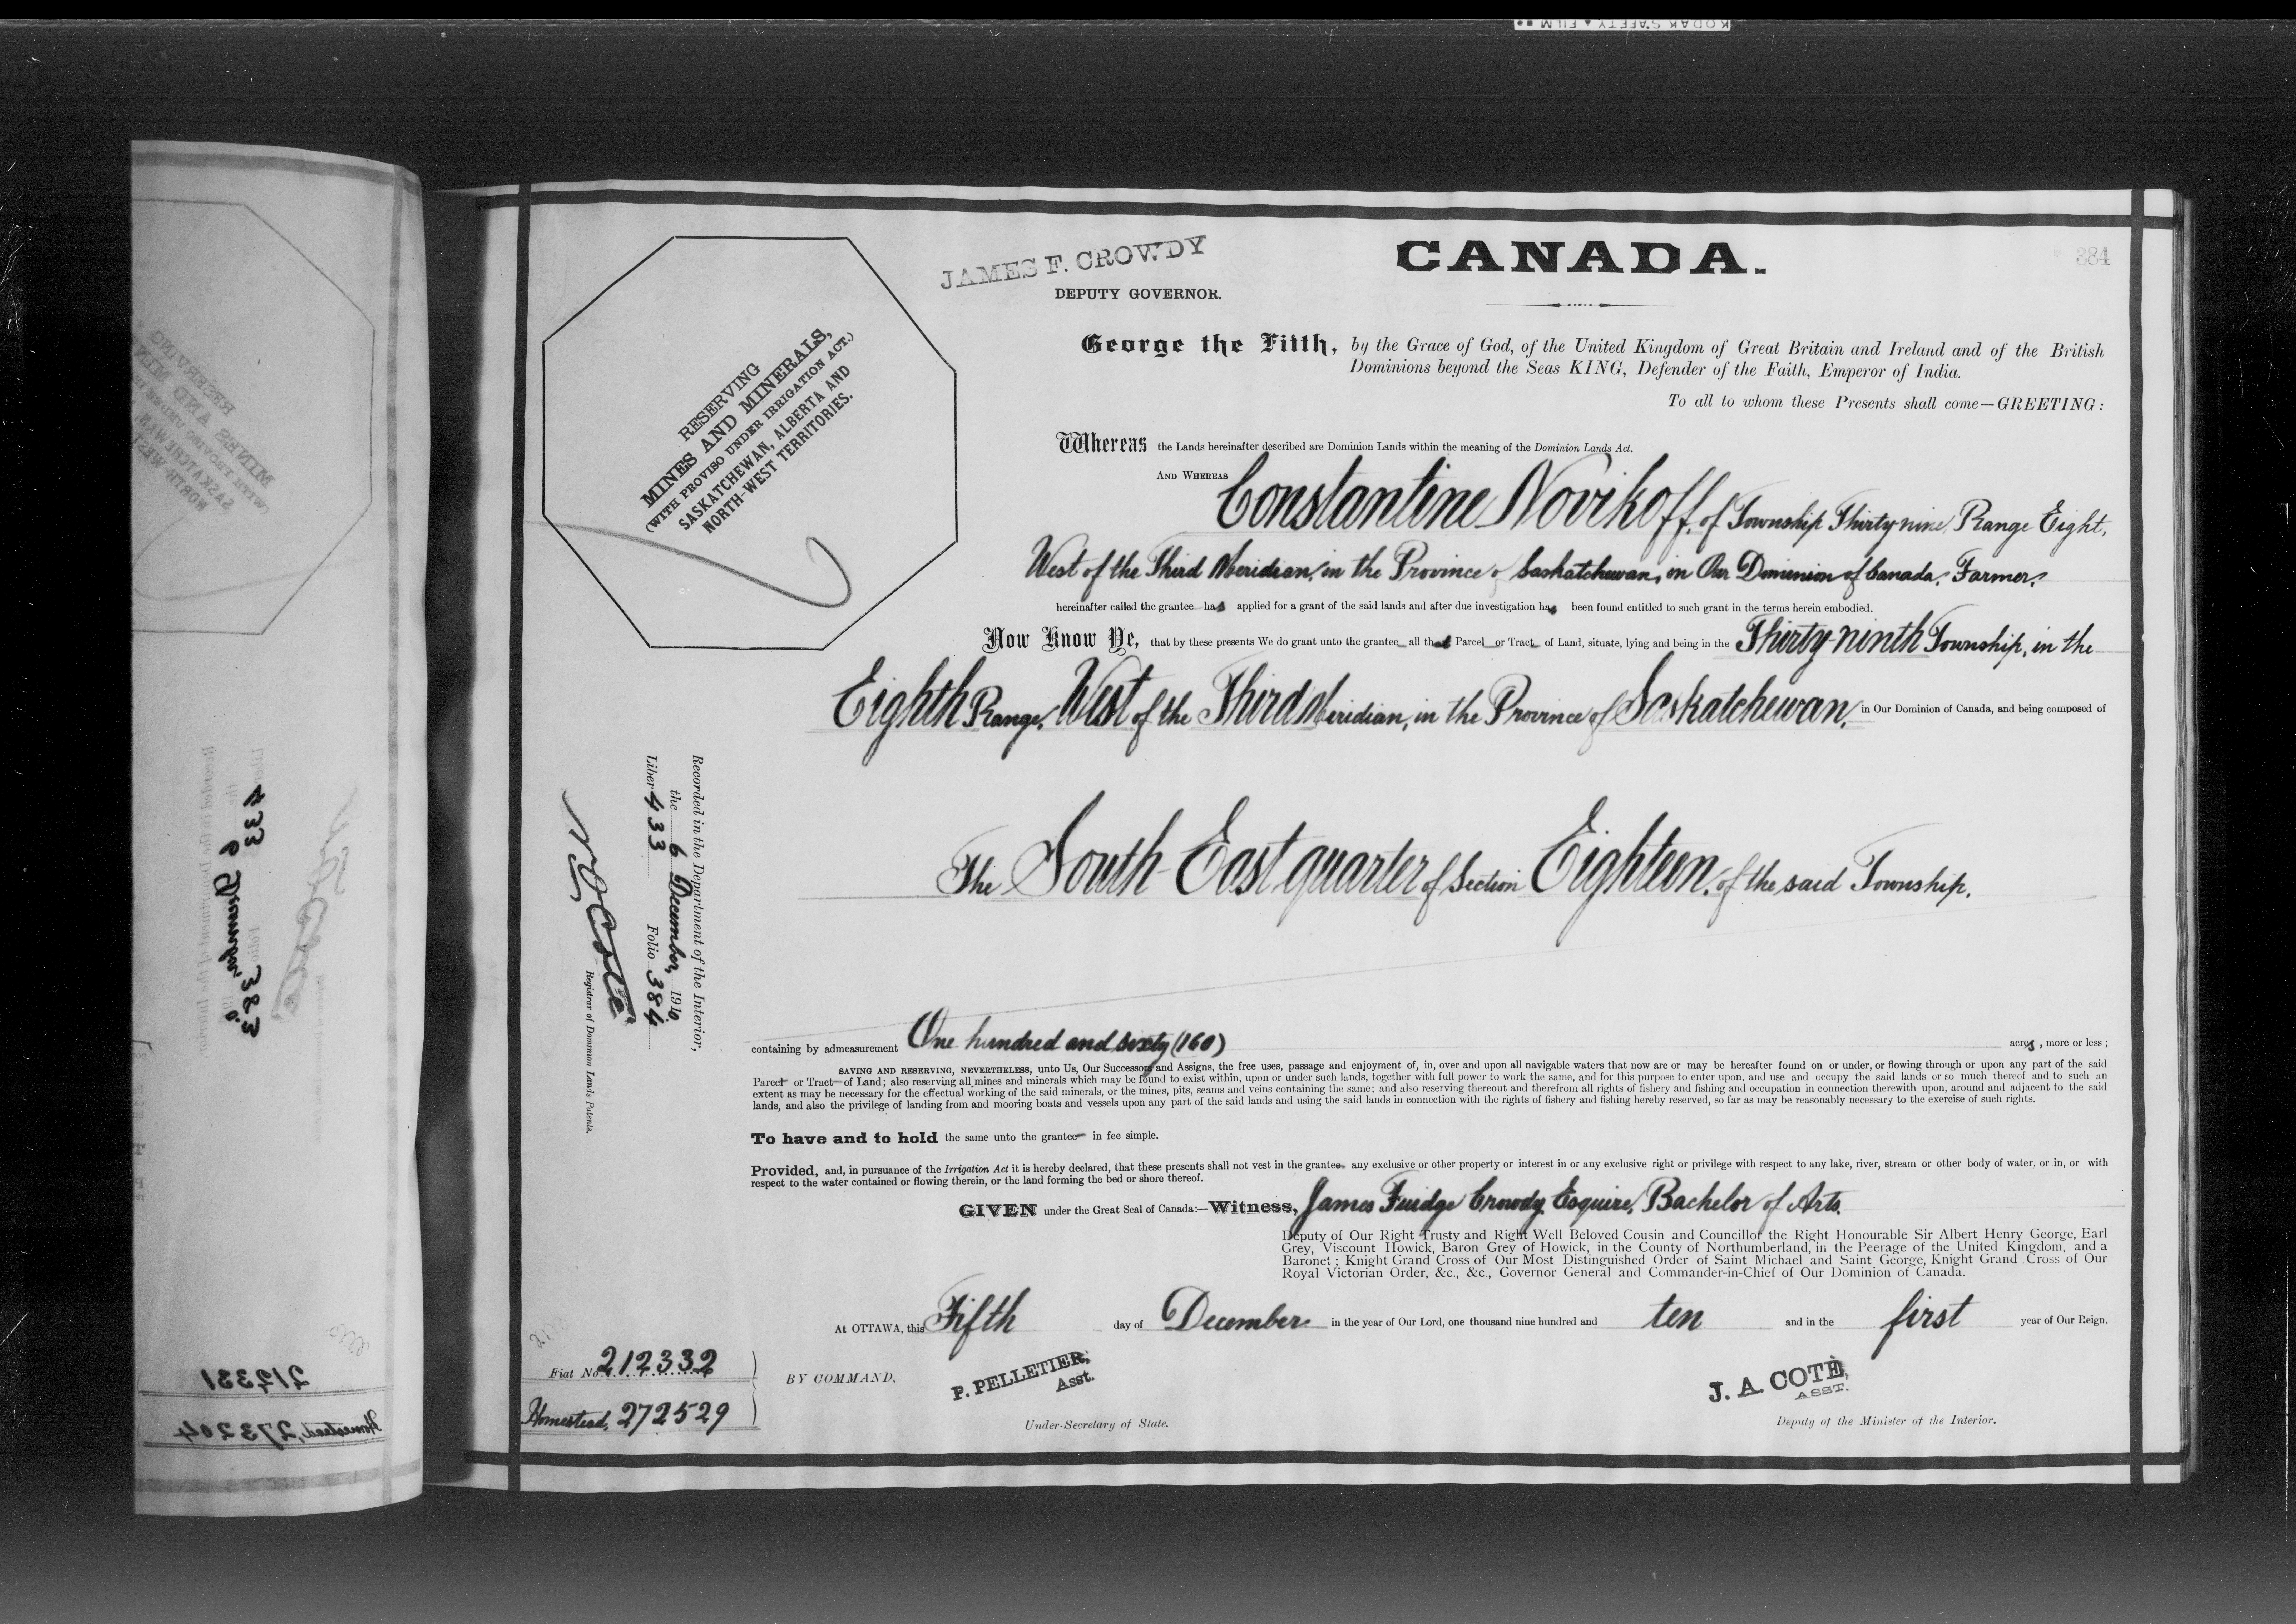 KODAK SAFETY FILM
JAMES F. CROWDY
DEPUTY GOVERNOR.
CANADA.
384
RESERVING
MINES AND MINERALS,
(WITH PROVISO UNDER IRRIGATION ACT.)
SASKATCHEWAN, ALBERTA AND
NORTH-WEST TERRITORIES.
George the Fifth, by the Grace of God, of the United Kingdom of Great Britain and Ireland and of the British
Dominions beyond the Seas KING, Defender of the Faith, Emperor of India.
To all to whom these Presents shall come—GREETING:
Whereas the Lands hereinafter described are Dominion Lands within the meaning of the Dominion Lands Act.
AND WHEREAS Constantine Novikoff, of Township Thirty nine, Range Eight,
West of the Third Meridian, in the Province of Saskatchewan, in Our Dominion of Canada, Farmer,
hereinafter called the grantee has applied for a grant of the said lands and after due investigation has been found entitled to such grant in the terms herein embodied.
Now Know Ye, that by these presents We do grant unto the grantee all that Parcel or Tract of Land, situate, lying and being in the Thirty-ninth Township, in the
Eighth Range, West of the Third Meridian, in the Province of Saskatchewan, in Our Dominion of Canada, and being composed of
The South East quarter of Section Eighteen, of the said Township.
Recorded in the Department of the Interior,
the 6 December, 1910.
Liber 433 Folio 384
Registrar of Dominion Lands Patents.
containing by admeasurement One hundred and sixty (160) acres, more or less;
SAVING AND RESERVING, NEVERTHELESS, unto Us, Our Successors and Assigns, the free uses, passage and enjoyment of, in, over and upon all navigable waters that now are or may be hereafter found on or under, or flowing through or upon any part of the said
Parcel or Tract of Land; also reserving all mines and minerals which may be found to exist within, upon or under such lands, together with full power to work the same, and for this purpose to enter upon, and use and occupy the said lands or so much thereof and to such an
extent as may be necessary for the effectual working of the said minerals, or the mines, pits, seams and veins containing the same; and also reserving thereout and therefrom all rights of fishery and fishing and occupation in connection therewith upon, around and adjacent to the said
lands, and also the privilege of landing from and mooring boats and vessels upon any part of the said lands and using the said lands in connection with the rights of fishery and fishing hereby reserved, so far as may be reasonably necessary to the exercise of such rights.
To have and to hold the same unto the grantee in fee simple.
Provided, and, in pursuance of the Irrigation Act it is hereby declared, that these presents shall not vest in the grantee any exclusive or other property or interest in or any exclusive right or privilege with respect to any lake, river, stream or other body of water, or in, or with
respect to the water contained or flowing therein, or the land forming the bed or shore thereof.
GIVEN under the Great Seal of Canada:—Witness, James Fuidge Crowdy, Esquire, Bachelor of Arts,
Deputy of Our Right Trusty and Right Well Beloved Cousin and Councillor the Right Honourable Sir Albert Henry George, Earl
Grey, Viscount Howick, Baron Grey of Howick, in the County of Northumberland, in the Peerage of the United Kingdom, and a
Baronet; Knight Grand Cross of Our Most Distinguished Order of Saint Michael and Saint George, Knight Grand Cross of Our
Royal Victorian Order, &c., &c., Governor General and Commander-in-Chief of Our Dominion of Canada.
At OTTAWA, this Fifth day of December in the year of Our Lord, one thousand nine hundred and ten and in the first year of Our Reign.
Fiat No. 212332
Homestead, 272529
BY COMMAND,
P. PELLETIER,
Asst.
Under-Secretary of State.
J. A. COTÉ,
ASST.
Deputy of the Minister of the Interior.
433
383
212331
Homestead, 273204